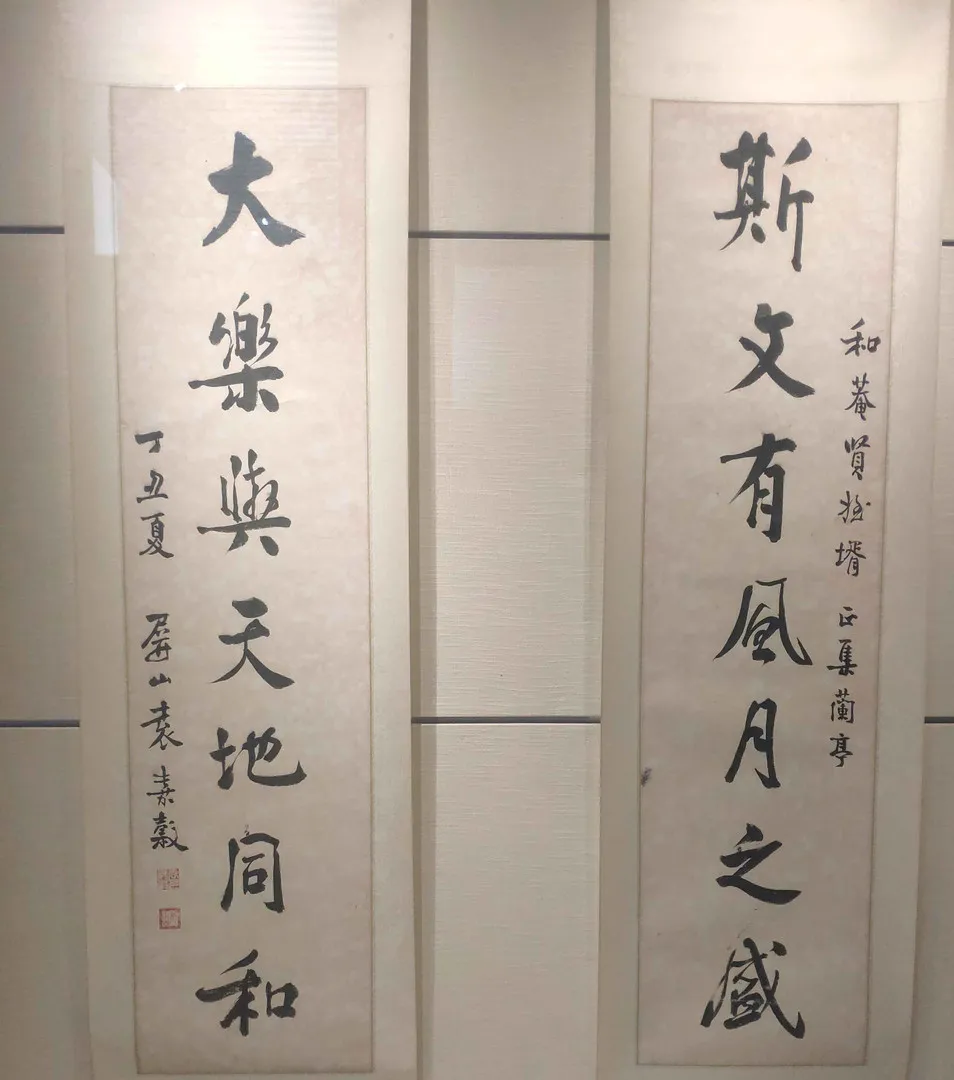 和菴賢姪壻 正集蘭亭
斯文有風月之盛
大樂與天地同和
丁丑夏 屏山袁嘉穀